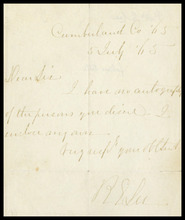 Cumberland Co
5 July '65
Dear Sir
I have no autographs
of the persons you desire. I
enclose my own.
Very respy your obt Svt
R E Lee